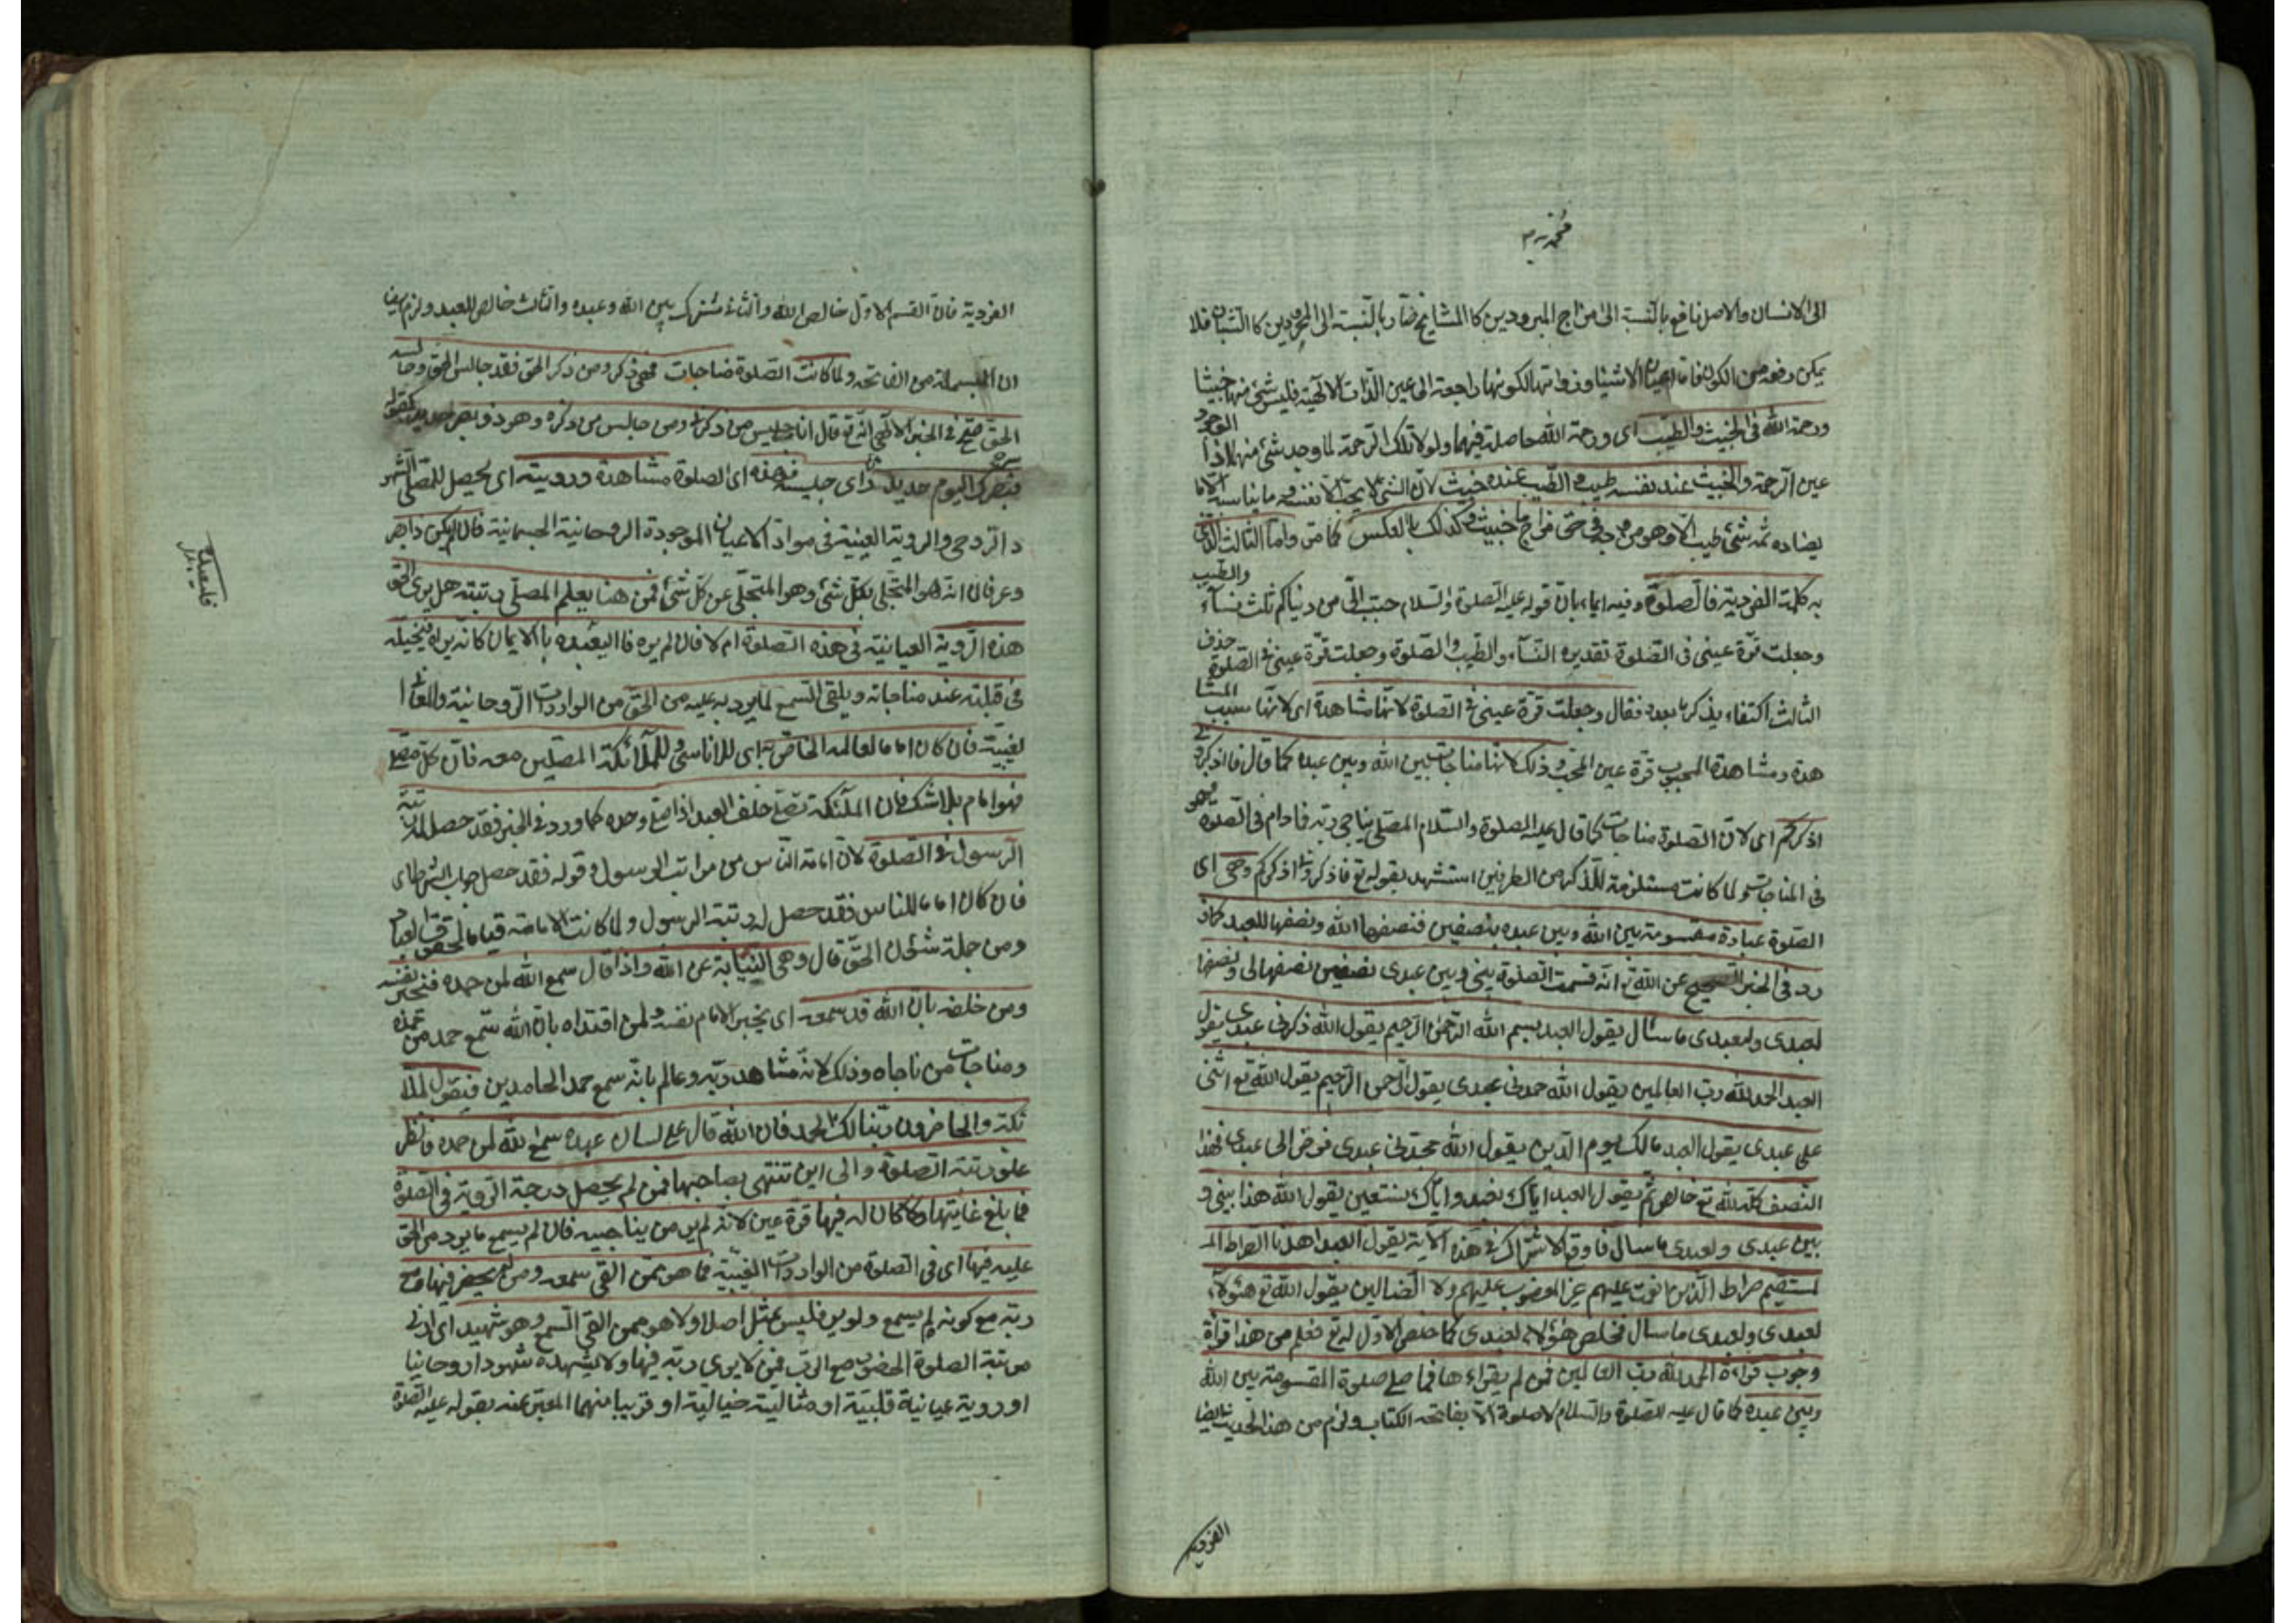 الى الانسان والاصل نافع بالنسبة الى مزاج المبرودين كالمشايخ ضار بالنسبة الى المحرورين كالشبان فلا
يمكن رفعه من الكون فان اعيان الاشياء وذواتها لكونها راجعة الى عين الذات الالهية فليس شئ منها خبيثا
ورحمة الله فى الخبيث والطيب اى ورحمة الله حاصلة فيهما ولولا تلك الرحمة لما وجد شئ منهما اذ الوجود
عين الرحمة والخبيث عند نفسه طيب والطيب عنده خبيث لان الشئ لا يحب الا نفسه وما يناسبه لا ما
يضاده ثمه شئ طيب الا وهو من وجه فى حق مزاج ما خبيث وكذلك بالعكس كما مر واما الثالث الذى
به كملت الفردية فالصلوة وفيه ايماء بان قوله عليه الصلوة والسلام حبب الى من دنياكم ثلث نساء والطيب
وجعلت قرة عينى فى الصلوة تقديره النساء والطيب والصلوة وجعلت قرة عينى فى الصلوة حذف
الثالث اكتفاء بذكر ما بعده فقال وجعلت قرة عينى فى الصلوة لانها مشاهدة اى لانها سبب المشا
هدة ومشاهدة المحبوب قرة عين المحب وذلك لانها مناجات بين الله وبين عبده كما قال فاذكرونى
اذكركم اى لان الصلوة مناجات كما قال عليه الصلوة والسلام المصلى يناجى ربه فادام فى الصلوة فهو
فى المناجات ولما كانت مستلزمة للذكر من الطرفين استشهد بقوله تع فاذكرونى اذكركم وهى اى
الصلوة عبادة مقسومة بين الله وبين عبده بنصفين فنصفها الله ونصفها للعبد كماو
رد فى الخبر الصحيح عن الله تع انه قسمت الصلوة بينى وبين عبدى نصفين نصفها لى ونصفها
لعبدى ولعبدى ما سأل يقول العبد بسم الله الرحمن الرحيم يقول الله ذكرنى عبدى يقول
العبد الحمد لله رب العالمين يقول الله حمدنى عبدى يقول الرحمن الرحيم يقول الله تع اثنى
على عبدى يقول العبد مالك يوم الدين يقول الله مجدنى عبدى فوض الى عبدى فهذا
النصف كله لله تع خالص ثم يقول العبد اياك نعبد واياك نستعين يقول الله هذا بينى و
بين عبدى ولعبدى ما سأل فاوقع الاشتراك فى هذه الاية يقول العبد اهدنا الصراط المـ
لمستقيم صراط الذين انعمت عليهم غير المغضوب عليهم ولا الضالين يقول الله تع هؤلاء
لعبدى ولعبدى ما سأل فخلص هؤلاء لعبدى كما خلص الاول له تع فعلم من هذا قرأة
وجوب قراءة الحمد لله رب العالمين فمن لم يقراءها فما صلى صلوة المقسومة بين الله
وبين عبده كما قال عليه الصلوة والسلام لا صلوة الا بفاتحة الكتاب ولزم من هذا الحديث ايضا
الفردية
الفردية فان القسم الاول خالص الله والثانى مشترك بين الله وعبده والثالث خالص للعبد ولزم ايضا
ان البسملة من الفاتحة ولما كانت الصلوة مناجات فهى ذكر ومن ذكر الحق فقد جالس الحق وجالسه
الحق صح فى الخبر الالهى انه تع قال انا جليس من ذكرنى ومن جالس من ذكره وهو ذو بصر حديد كقوله
فبصرك اليوم حديد رأى جليسه فهذه اى الصلوة مشاهدة ورؤية اى يحصل للمصلى الشهو
د الروحى والروية العينية فى مواد الاعيان الموجودة الروحانية الجسمانية فان لم يكن ذا بصر
وعرفان انه هو المتجلى بكل شئ وهو المتجلى عن كل شئ فمن هنا يعلم المصلى رتبته هل يرى الحق
هذه الروية العيانية فى هذه الصلوة ام لا فان لم يره فاليعبده بالايمان كانه يراه فيخيله
فى قبلته عند مناجاته ويلقى السمع لما يرد به عليه من الحق من الواردات الروحانية والمعانى ا
لغيبية فان كان اماما لعالمه الخاص به اى للاناسى وللملائكة المصلين معه فان كل مصل
فهو امام بلا شك فان الملئكة تصلى خلف العبد اذا صلى وحده كما ورد فى الخبر فقد حصل له رتبة
الرسول فى الصلوة لان امامة الناس من مراتب الرسول و قوله فقد حصل جواب الشرط اى
فان كان اماما للناس فقد حصل له رتبة الرسول ولما كانت الامامة قياما بحقوق العباد
ومن جملة شئون الحق قال وهى النيابة عن الله واذا قال سمع الله لمن حمده فيخبر نفسه
ومن خلفه بان الله قد سمعه اى يخبر الامام نفسه ولمن اقتداه بان الله سمع حمد من حمده
ومناجات من ناجاه وذلك لانه مشاهد ربه وعالم بانه سمع حمد الحامدين فيقول الملا
ئكة والحاضرون ربنا لك الحمد فان الله قال على لسان عبده سمع الله لمن حمده فانظر
علو رتبة الصلوة والى اين تنتهى بصاحبها فمن لم يحصل درجة الروية فى الصلوة
فما بلغ غايتها وما كان له فيها قرة عين لانه لم ير من يناجيه فان لم يسمع ما يرد من الحق
عليه فيها اى فى الصلوة من الواردات الغيبية فما هو ممن القى سمعه ومن لم يحضر فيها مع
ربه مع كونه لم يسمع ولم ير فليس بمصل اصلا ولا هو ممن القى السمع وهو شهيد اى ادنى
مرتبة الصلوة الحضور مع الرب فمن لا يرى ربه فيها ولا يشهده شهودا روحانيا
او روية عيانية قلبية او مثالية خيالية او قريبا منهما المعبر عنه بقوله عليه الصلوة